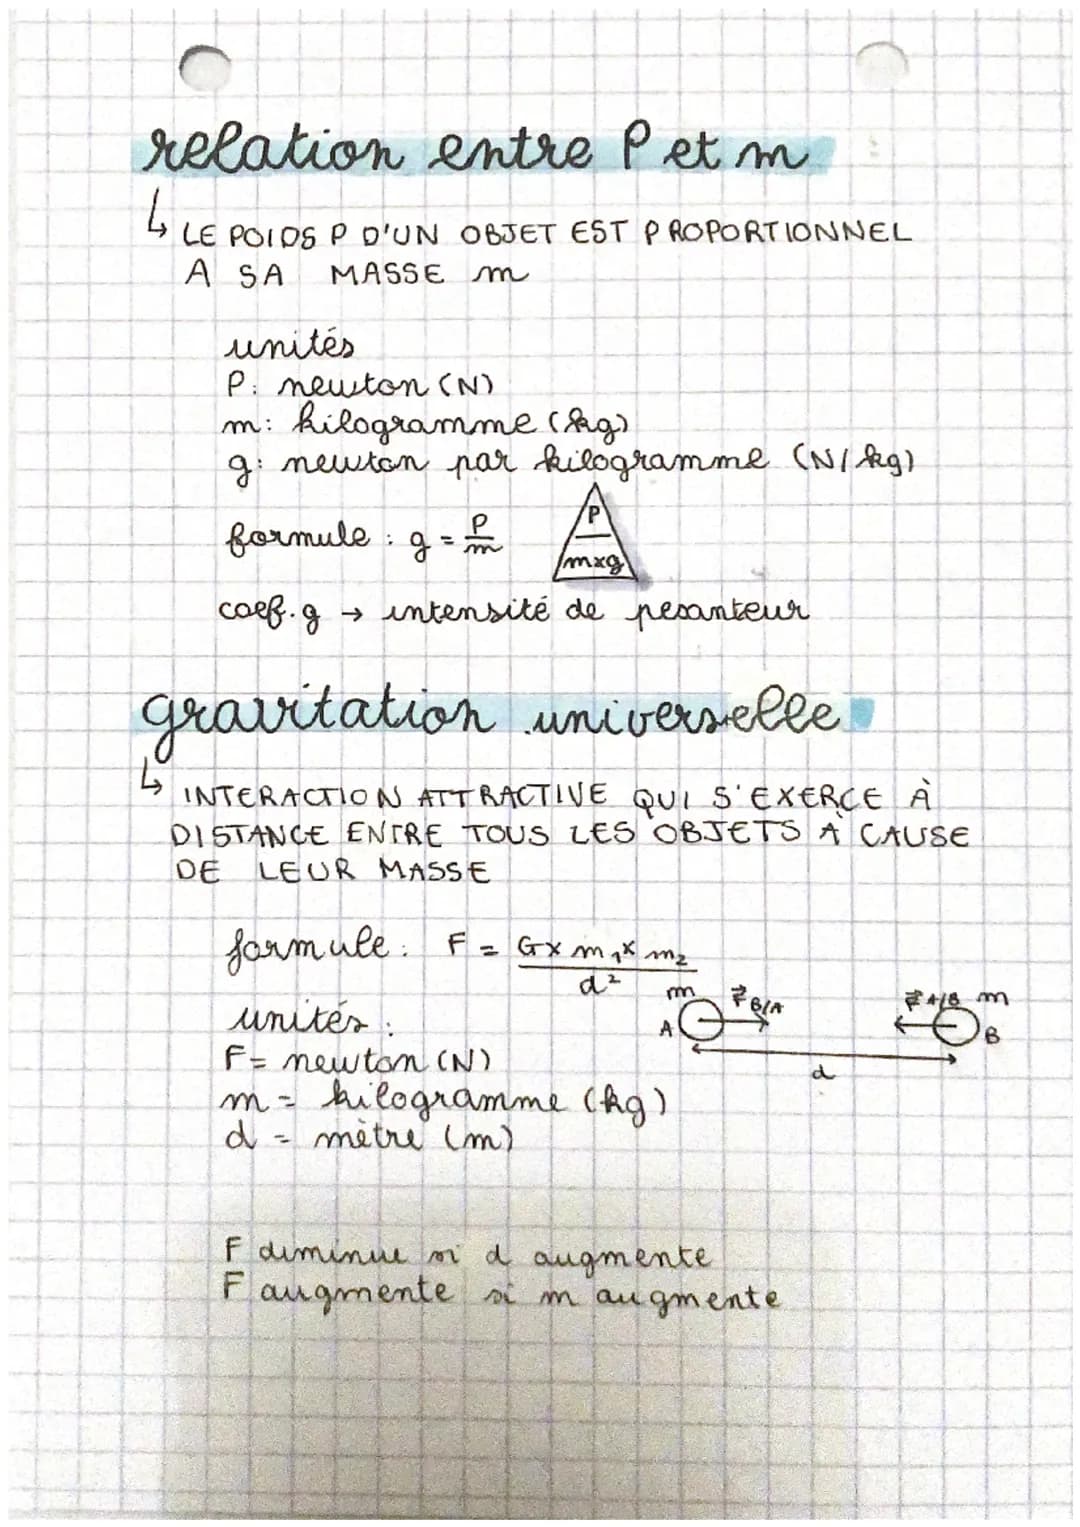 relation entre P et m
↳ LE POIDS P D'UN OBJET EST PROPORTIONNEL
A SA MASSE m
unités
P: newton (N)
m: kilogramme (kg)
g: newton par kilogramme (N/kg)
formule : g = P/m
P
mxg
coef. g → intensité de pesanteur
gravitation universelle
↳ INTERACTION ATTRACTIVE QUI S'EXERCE À
DISTANCE ENTRE TOUS LES OBJETS À CAUSE
DE LEUR MASSE
formule : F = G x m1 x m2 / d²
m F B/A F A/B m
A B
d
unités :
F = newton (N)
m = kilogramme (kg)
d = mètre (m)
F diminue si d augmente
F augmente si m augmente